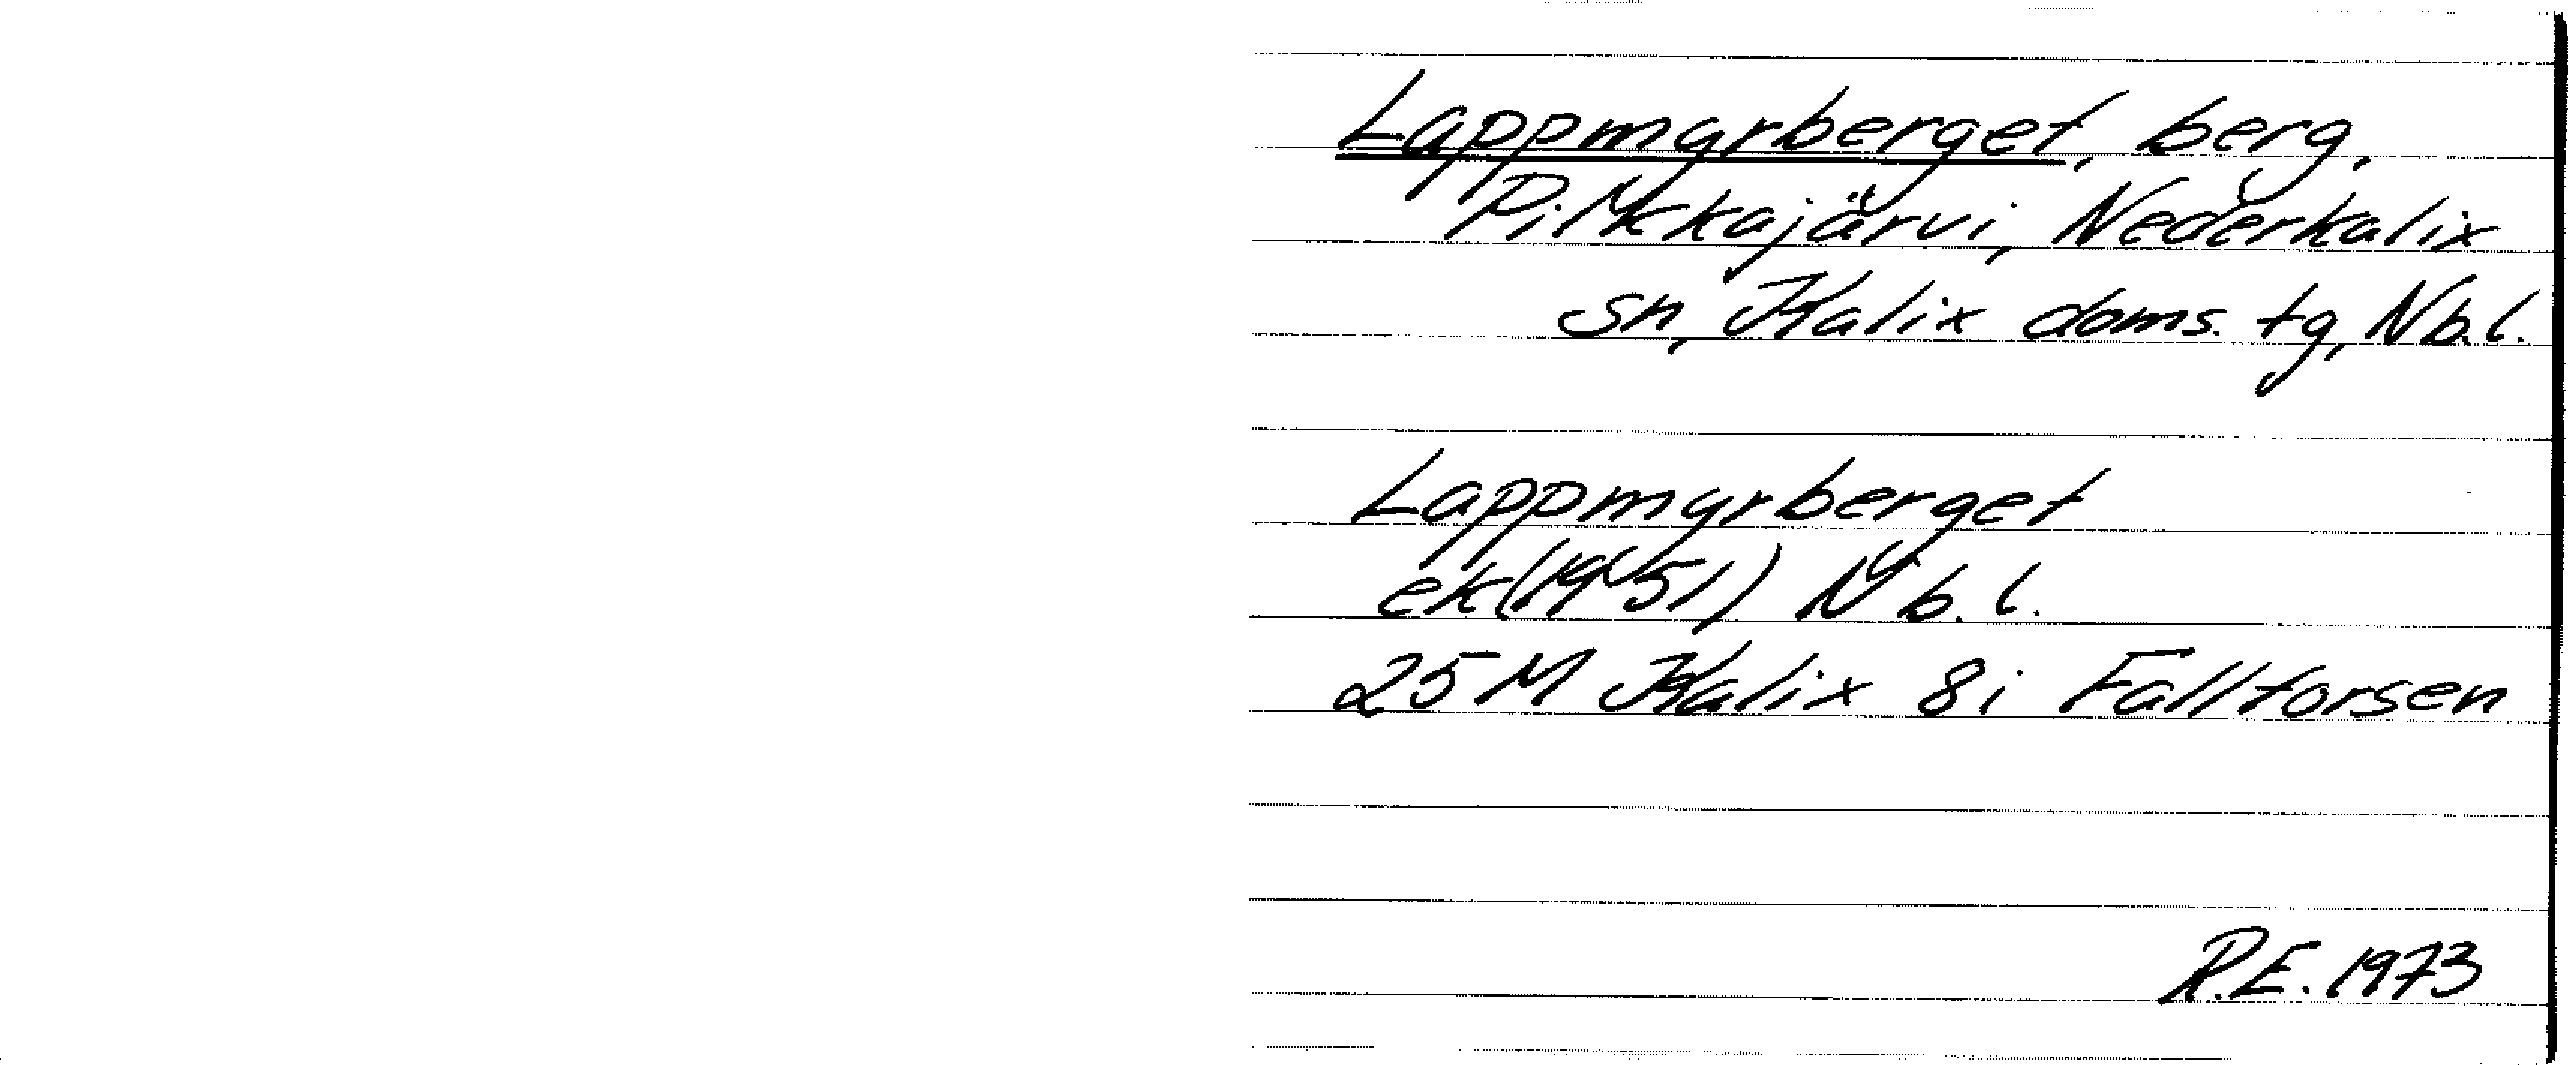 Lappmyrberget, berg,
Pilkkajärvi, Nederkalix
sn, Kalix doms. tg, Nb.l.
Lappmyrberget
ek(1951) Nb.l.
25M Kalix 8i Fallforsen
R.E. 1973